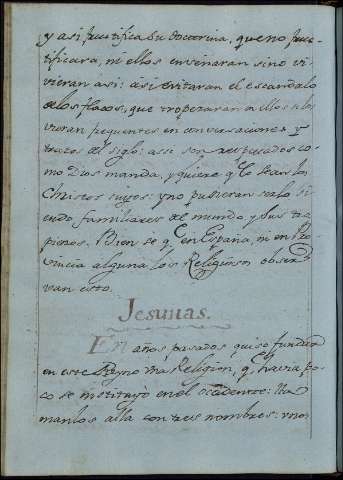 y asi fructifica su doctrina, que no fruc-
tificara, ni ellos enseñaran sino vi-
vieran asi: asi evitaran el escandalo
de los flacos, que tropezaran a ellos si los
vieran frequentes en conversaciones y
tratos del siglo: asi son respetados co-
mo Dios manda, y quiere q.e lo sean los
Christos suyos: y no pudieran serlo si-
endo familiares del mundo y sus tra-
pienos. Bien se q.e en España, ni en Pro-
vincia alguna los Religiosos obser-
van esto.
Jesuitas.
En años pasados quiso fundar
en este Reyno una Religion, q.e havia po-
co se instituyò en el occidente: lla-
manlos alla con tres nombres: unos